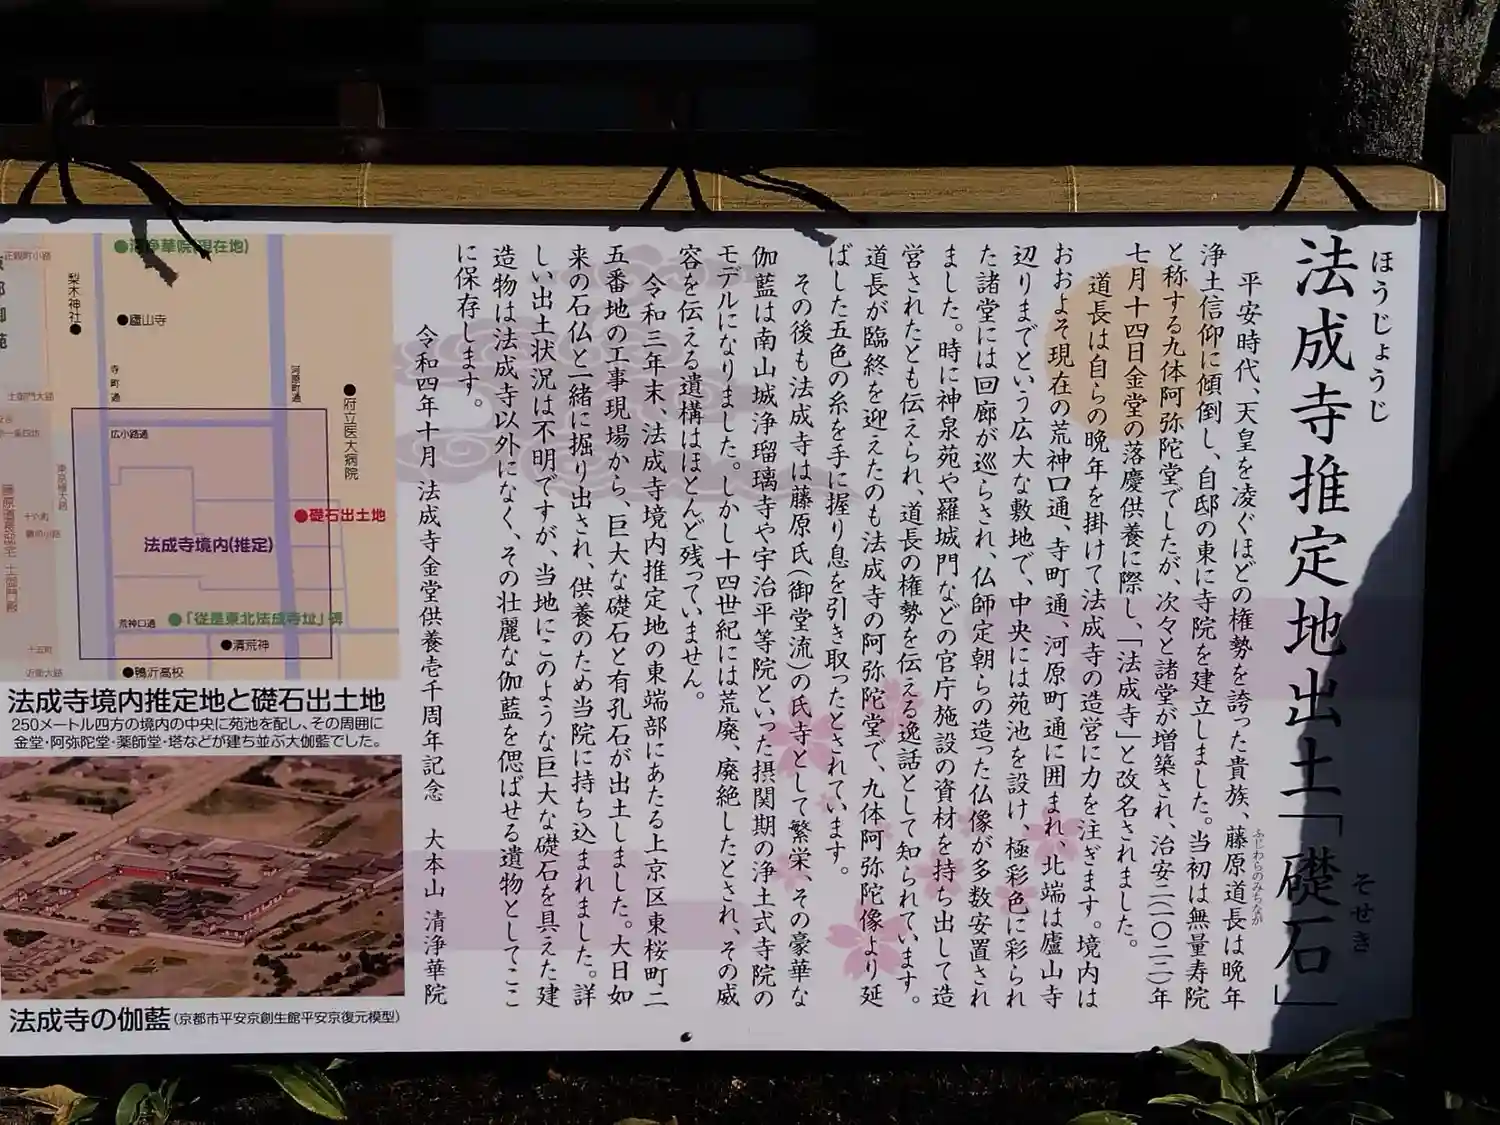 ほうじょうじ
法成寺推定地出土「礎石」
そせき
平安時代、天皇を凌ぐほどの権勢を誇った貴族、藤原道長は晩年
ふじわらのみちなが
浄土信仰に傾倒し、自邸の東に寺院を建立しました。当初は無量寿院
と称する九体阿弥陀堂でしたが、次々と諸堂が増築され、治安二(一〇二二)年
七月十四日金堂の落慶供養に際し、「法成寺」と改名されました。
道長は自らの晩年を掛けて法成寺の造営に力を注ぎます。境内は
おおよそ現在の荒神口通、寺町通、河原町通に囲まれ、北端は廬山寺
辺りまでという広大な敷地で、中央には苑池を設け、極彩色に彩られ
た諸堂には回廊が巡らされ、仏師定朝らの造った仏像が多数安置され
ました。時に神泉苑や羅城門などの官庁施設の資材を持ち出して造
営されたとも伝えられ、道長の権勢を伝える逸話として知られています。
道長が臨終を迎えたのも法成寺の阿弥陀堂で、九体阿弥陀像より延
ばした五色の糸を手に握り息を引き取ったとされています。
その後も法成寺は藤原氏(御堂流)の氏寺として繁栄、その豪華な
伽藍は南山城浄瑠璃寺や宇治平等院といった摂関期の浄土式寺院の
モデルになりました。しかし十四世紀には荒廃、廃絶したとされ、その威
容を伝える遺構はほとんど残っていません。
令和三年末、法成寺境内推定地の東端部にあたる上京区東桜町二
五番地の工事現場から、巨大な礎石と有孔石が出土しました。大日如
来の石仏と一緒に掘り出され、供養のため当院に持ち込まれました。詳
しい出土状況は不明ですが、当地にこのような巨大な礎石を具えた建
造物は法成寺以外になく、その壮麗な伽藍を偲ばせる遺物としてここ
に保存します。
令和四年十月 法成寺金堂供養壱千周年記念 大本山 清浄華院
正親町小路
●清浄華院(現在地)
梨木神社●
●廬山寺
寺町通
河原町通
●府立医大病院
土御門大路
広小路通
東京極大路
●礎石出土地
法成寺境内(推定)
●「従是東北法成寺址」碑
荒神口通
●清荒神
近衛大路
●鴨沂高校
法成寺境内推定地と礎石出土地
250メートル四方の境内の中央に苑池を配し、その周囲に
金堂・阿弥陀堂・薬師堂・塔などが建ち並ぶ大伽藍でした。
法成寺の伽藍(京都市平安京創生館平安京復元模型)